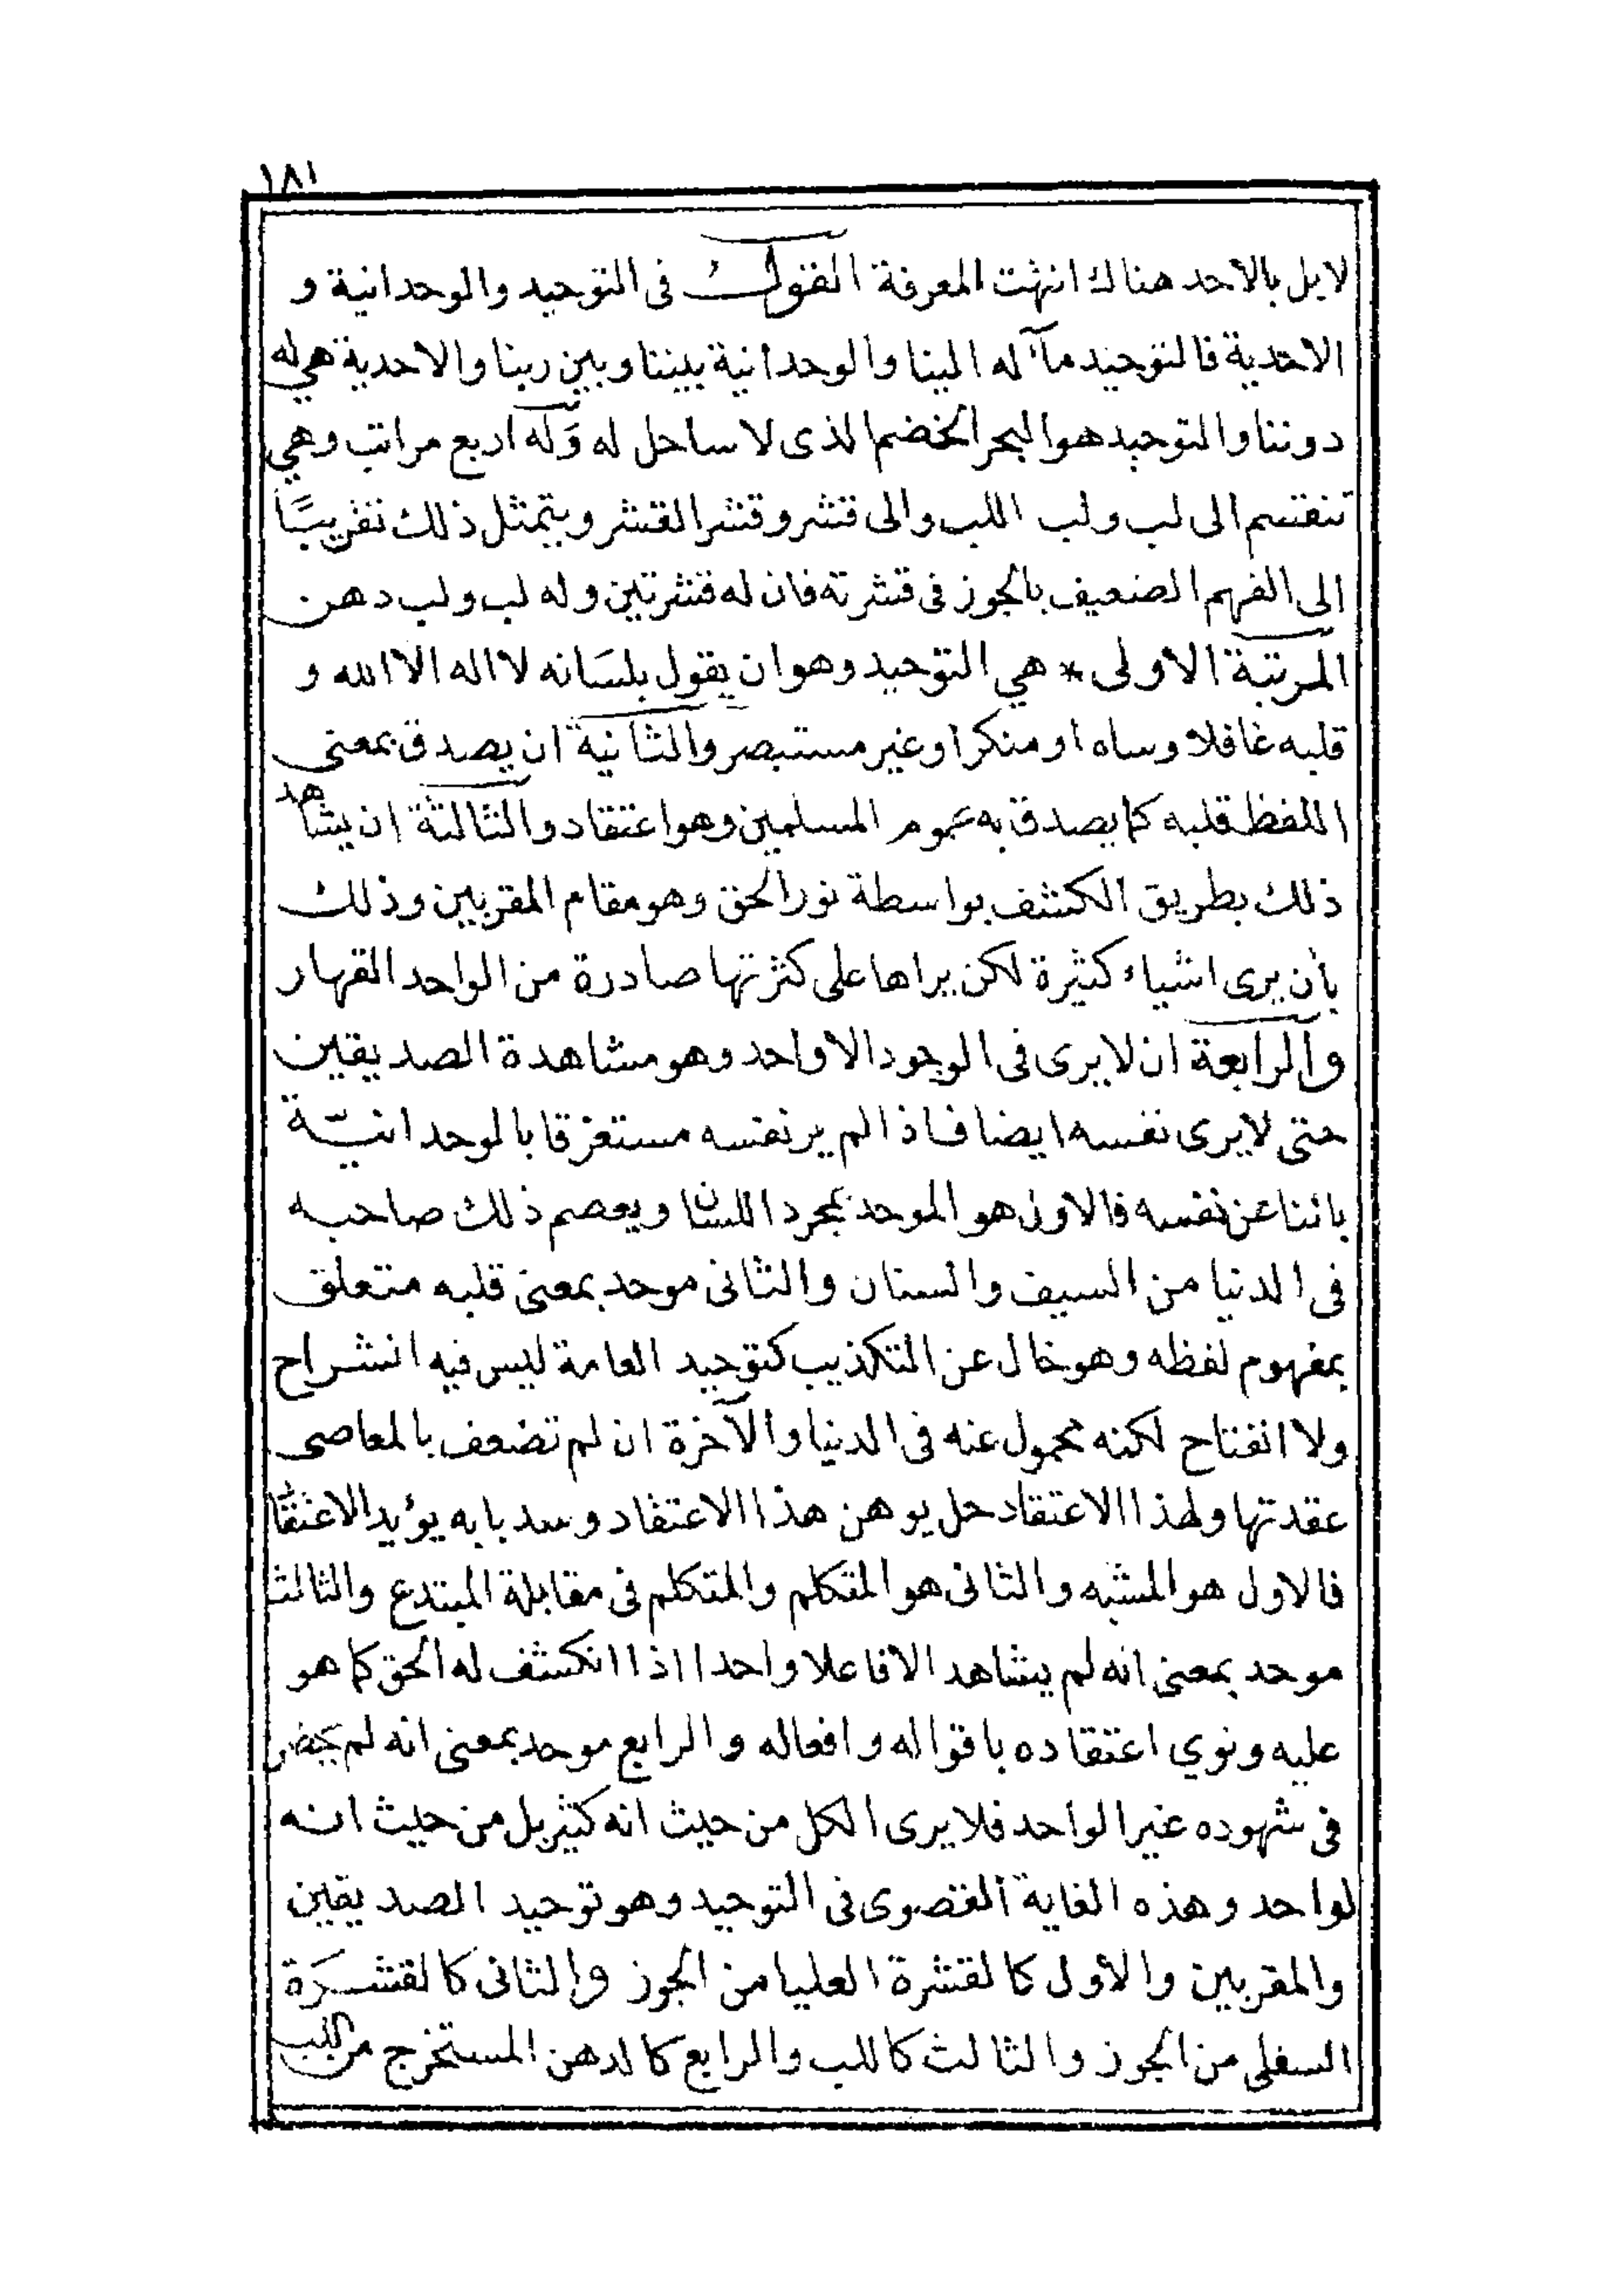 ١٨١
لا بل بالاحد هناك انتهت المعرفة القول فى التوحيد والوحدانية و
الاحدية فالتوحيد مآله الينا والوحدانية بيننا وبين ربنا والاحدية هي له
دوننا والتوحيد هو البحر الخضم الذى لا ساحل له وله اربع مراتب وهي
تنقسم الى لب ولب اللب والى قشر وقشر القشر ويتمثل ذلك تقريبًا
الى الفهم الضعيف بالجوز فى قشرته فان له قشرتين وله لب ولب دهن
المرتبة الاولى * هي التوحيد وهو ان يقول بلسَانه لا اله الا الله و
قلبه غافلا وساه او منكرا وغير مستبصر والثانية ان يصدق بمعنى
اللفظ قلبه كما يصدق به عموم المسلمين وهو اعتقاد والثالثة ان يشاهد
ذلك بطريق الكشف بواسطة نور الحق وهو مقام المقربين وذلك
بأن يرى اشياء كثيرة لكن يراها على كثرتها صادرة من الواحد القهار
والرابعة ان لا يرى فى الوجود الا واحد وهو مشاهدة الصديقين
حتى لا يرى نفسه ايضا فاذا لم ير نفسه مستغرقا بالوحدانيّة
بائنا عن نفسه فالاول هو الموحد بمجرد اللسان ويعصم ذلك صاحبه
فى الدنيا من السيف والسنان والثانى موحد بمعنى قلبه متعلق
بمفهوم لفظه وهو خال عن التكذيب كتوحيد العامة ليس فيه انشراح
ولا انفتاح لكنه محمول عنه فى الدنيا والآخرة ان لم تضعف بالمعاصى
عقدتها ولهذا الاعتقاد حل يوهن هذا الاعتقاد وسد بابه يؤيد الاعتقاد
فالاول هو المشبه والثانى هو المتكلم والمتكلم فى مقابلة المبتدع والثالث
موحد بمعنى انه لم يشاهد الا فاعلا واحدا اذا انكشف له الحق كما هو
عليه ونوي اعتقاده باقواله وافعاله والرابع موحد بمعنى انه لم يحضر
فى شهوده غير الواحد فلا يرى الكل من حيث انه كثير بل من حيث انه
لواحد وهذه الغاية القصوى فى التوحيد وهو توحيد الصديقين
والمقربين والأول كالقشرة العليا من الجوز والثانى كالقشرَة
السفلى من الجوز والثالث كاللب والرابع كالدهن المستخرج من اللب